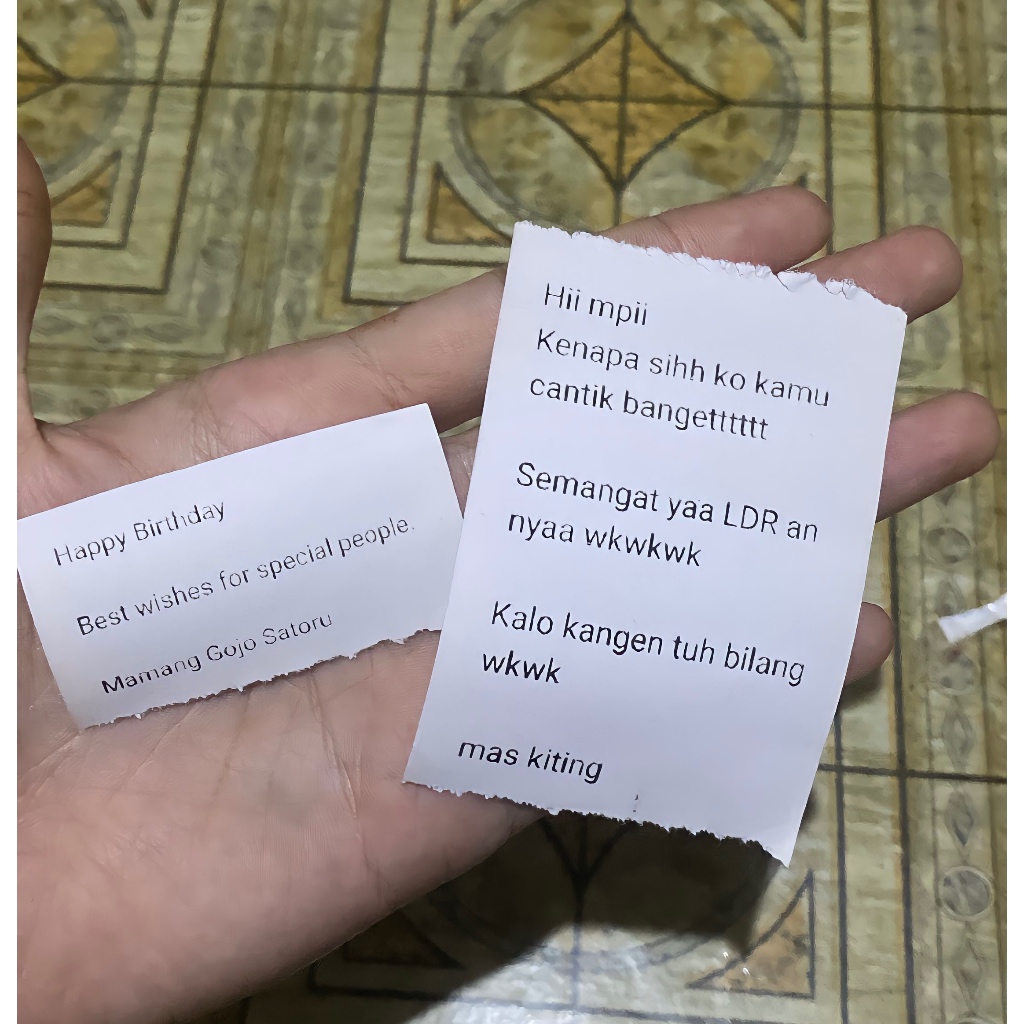 Happy Birthday
Best wishes for special people.
Mamang Gojo Satoru
Hii mpii
Kenapa sihh ko kamu
cantik bangetttttt
Semangat yaa LDR an
nyaa wkwkwk
Kalo kangen tuh bilang
wkwk
mas kiting